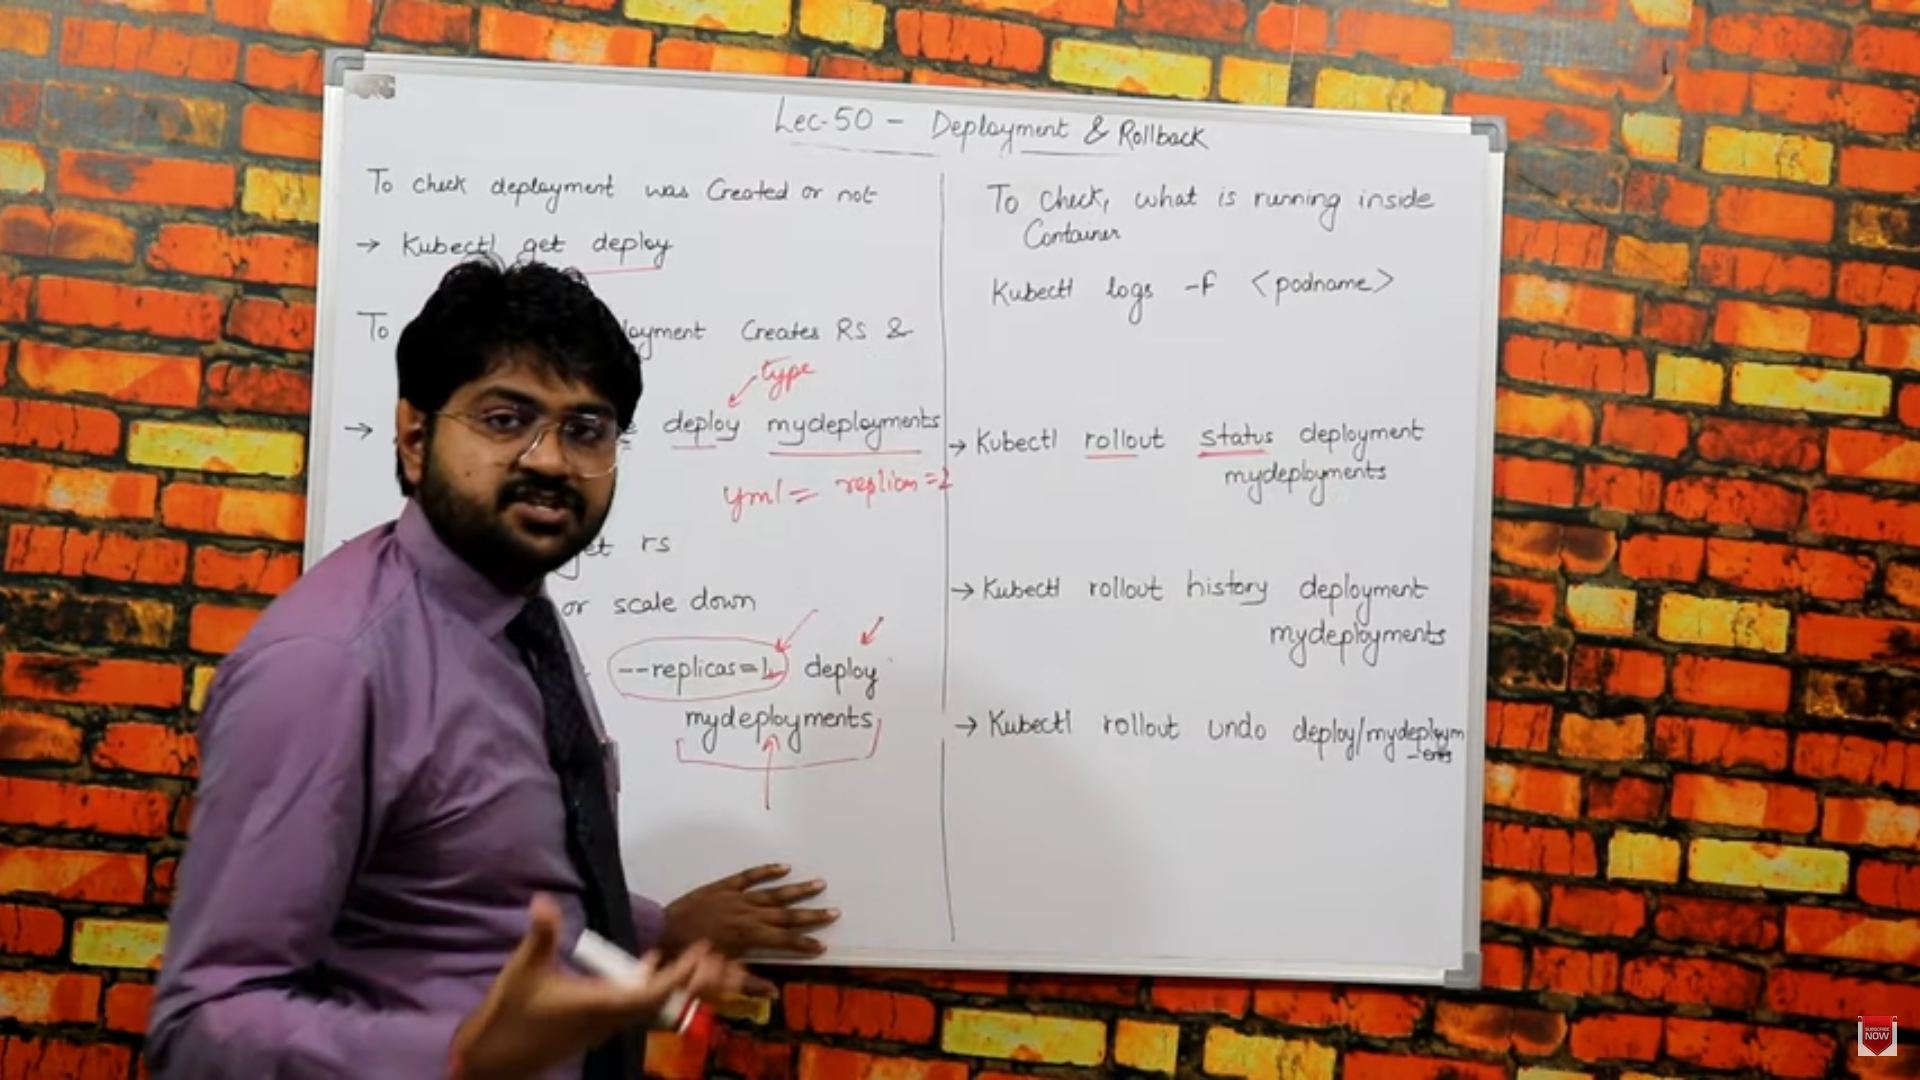 Lec-50 - Deployment & Rollback
To check deployment was Created or not
→ Kubectl get deploy
To loyment Creates RS &
type
→ deploy mydeployments
yml = replicas=2
get rs
or scale down
--replicas=1 deploy
mydeployments
To Check, what is running inside
Container
Kubectl logs -f <podname>
→ Kubectl rollout status deployment
mydeployments
→ Kubectl rollout history deployment
mydeployments
→ Kubectl rollout undo deploy/mydeploym
-ents
SUBSCRIBE
NOW